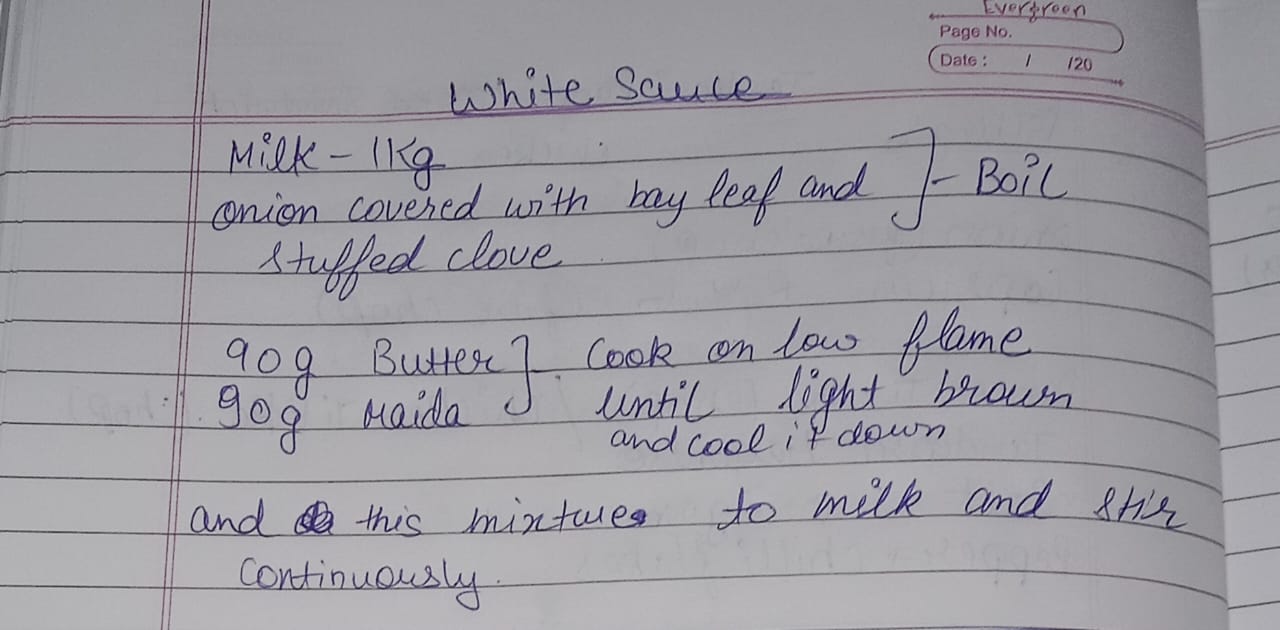 Evergreen
Page No.
Date : / /20
White Sauce
Milk - 1Kg
onion covered with bay leaf and ] - Boil
stuffed clove
90g Butter ] Cook on low flame
90g Maida until light brown
and cool it down
and this mixture to milk and stir
continuously.